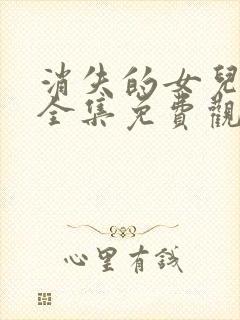 消失的女兒
全集免費觀
心里有錢